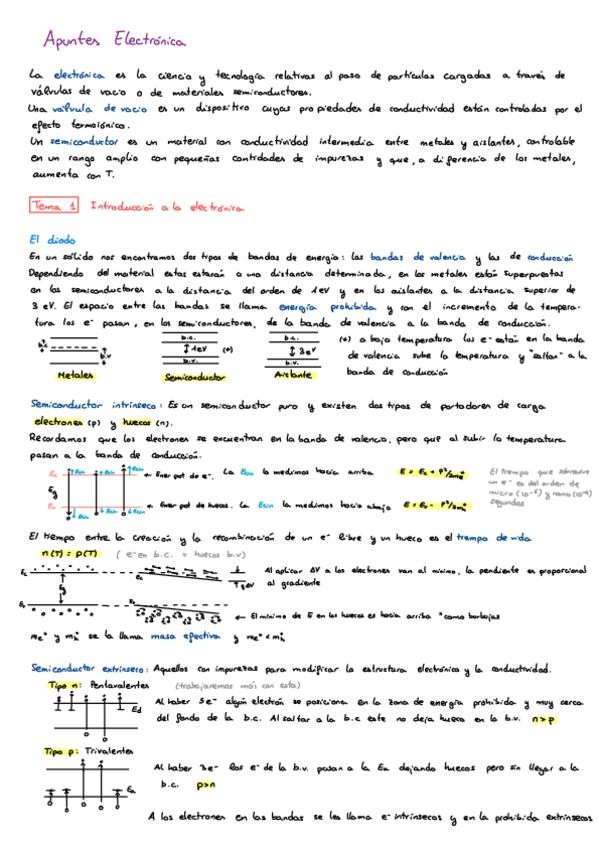 Apuntes Electrónica
La electrónica es la ciencia y tecnología relativas al paso de partículas cargadas a través de
válvulas de vacio o de materiales semiconductores.
Una válvula de vacio es un dispositivo cuyas propiedades de conductividad están controladas por el
efecto termoiónico.
Un semiconductor es un material con conductividad intermedia entre metales y aislantes, controlable
en un rango amplio con pequeñas cantidades de impurezas y que, a diferencia de los metales,
aumenta con T.
Tema 1 Introducción a la electrónica
El diodo
En un sólido nos encontramos dos tipos de bandas de energía: las bandas de valencia y las de conducción
Dependiendo del material estas estarán a una distancia determinada, en los metales están superpuestas
en los semiconductores a la distancia del orden de 1eV y en los aislantes a la distancia superior de
3 eV. El espacio entre las bandas se llama energía prohibida y con el incremento de la tempera-
tura los e- pasan, en los semiconductores, de la banda de valencia a la banda de conducción.
b.c. b.v. b.c. 1eV (*) b.v. b.c. 3eV b.v.
(*) a baja temperatura los e- están en la banda
de valencia sube la temperatura y "saltan" a la
banda de conducción
Metales Semiconductor Aislante
Semiconductor intrínseco: Es un semiconductor puro y existen dos tipos de portadores de carga
electrones (p) y huecos (n).
Recordamos que los electrones se encuentran en la banda de valencia, pero que al subir la temperatura
pasan a la banda de conducción.
Ec Ecin Ener pot de e-. La Ecin la medimos hacia arriba E = Ec + P²/2me*
Eg
Ev Ecin Ener pot de huecos. La Ecin la medimos hacia abajo E = Ev - P²/2mh*
El tiempo que sobrevive
un e- es del orden de
micro (10-6) y nano (10-9)
segundos
El tiempo entre la creación y la recombinación de un e- libre y un hueco es el tiempo de vida
n(T) = p(T) (e- en b.c. = huecos b.v)
Ec Eg Ev
Al aplicar ΔV a los electrones van al mínimo, la pendiente es proporcional
al gradiente
El mínimo de E en los huecos es hacia arriba "como burbujas
me* y mh* se la llama masa efectiva y me* < mh*
Semiconductor extrínseco: Aquellos con impurezas para modificar la estructura electrónica y la conductividad.
Tipo n: Pentavalentes (trabajaremos más con esta)
Ed
Al haber 5e- algún electrón se posiciona en la zona de energía prohibida y muy cerca
del fondo de la b.c. Al saltar a la b.c este no deja hueco en la b.v. n>p
Tipo p: Trivalentes
Ea
Al haber 3e- los e- de la b.v. pasan a la Ea dejando huecos pero sin llegar a la
b.c. p>n
A los electrones en las bandas se les llama e- intrínsecos y en la prohibida extrínsecos